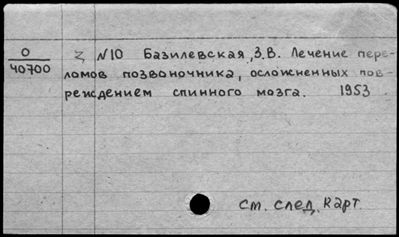 О
40700
Z, №10 Базилевская, З.В. Лечение пере-
ломов позвоночника, осложненных пов-
реждением спинного мозга. 1953.
см. след. карт.